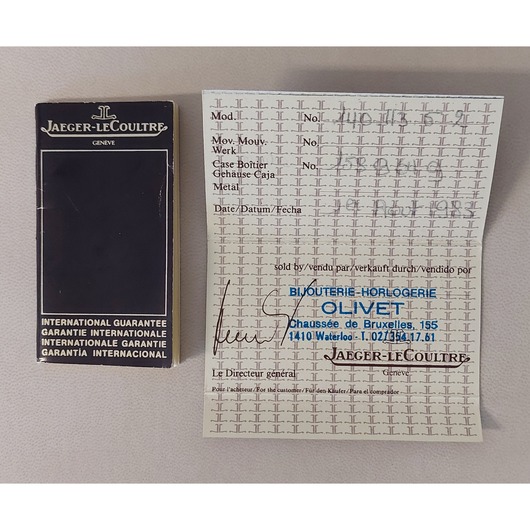 JAEGER-LECOULTRE
GENÈVE
INTERNATIONAL GUARANTEE
GARANTIE INTERNATIONALE
INTERNATIONALE GARANTIE
GARANTÍA INTERNACIONAL
Mod. No. 140 113 5 2
Mov. Mouv. No.
Werk
Case Boîtier No.
Gehäuse Caja
Metal
Date/Datum/Fecha 19 Aout 1983
sold by/vendu par/verkauft durch/vendido por
BIJOUTERIE-HORLOGERIE
OLIVET
Chaussée de Bruxelles, 155
1410 Waterloo - T. 02/354.17.61
JAEGER-LECOULTRE
Genève
Le Directeur général
Pour l'acheteur/For the customer/Für den Käufer/Para el comprador